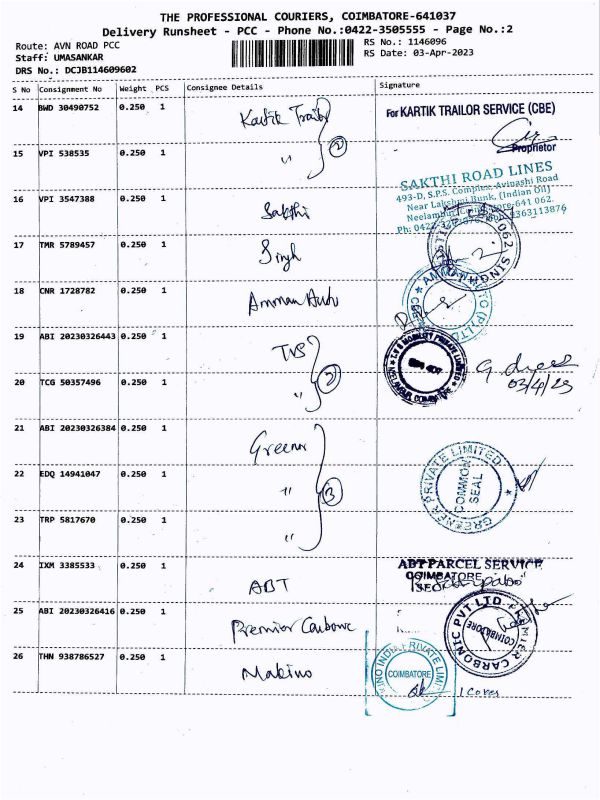 THE PROFESSIONAL COURIERS, COIMBATORE-641037
Delivery Runsheet - PCC - Phone No.:0422-3505555 - Page No.:2
Route: AVN ROAD PCC
RS No.: 1146096
Staff: UMASANKAR
RS Date: 03-Apr-2023
DRS No.: DCJB114609602
S No Consignment No Weight PCS Consignee Details Signature
14 BWD 30490752 0.250 1 Kartik Trailor
For KARTIK TRAILOR SERVICE (CBE)
Proprietor
15 VPI 538535 0.250 1 " 2
SAKTHI ROAD LINES
493-D, S.P.S. Complex, Avinashi Road
Near Lakshmi Bunk, (Indian Oil)
16 VPI 3547388 0.250 1 Sakthi
17 TMR 5789457 0.250 1 Singh
18 CNR 1728782 0.250 1 Amman Auto
19 ABI 20230326443 0.250 1 TVS
20 TCG 50357496 0.250 1 " 2
03/4/23
21 ABI 20230326384 0.250 1 Greener
22 EDQ 14941047 0.250 1 " 3
GREENER PRIVATE LIMITED
COMMON
SEAL
23 TRP 5817670 0.250 1 "
24 IXM 3385533 0.250 1 ABT
ABT PARCEL SERVICE
COIMBATORE
25 ABI 20230326416 0.250 1 Premier Carbonic
PREMIER CARBONIC PVT LTD
COIMBATORE
26 THN 938786527 0.250 1 Makino
COIMBATORE
1 Cover